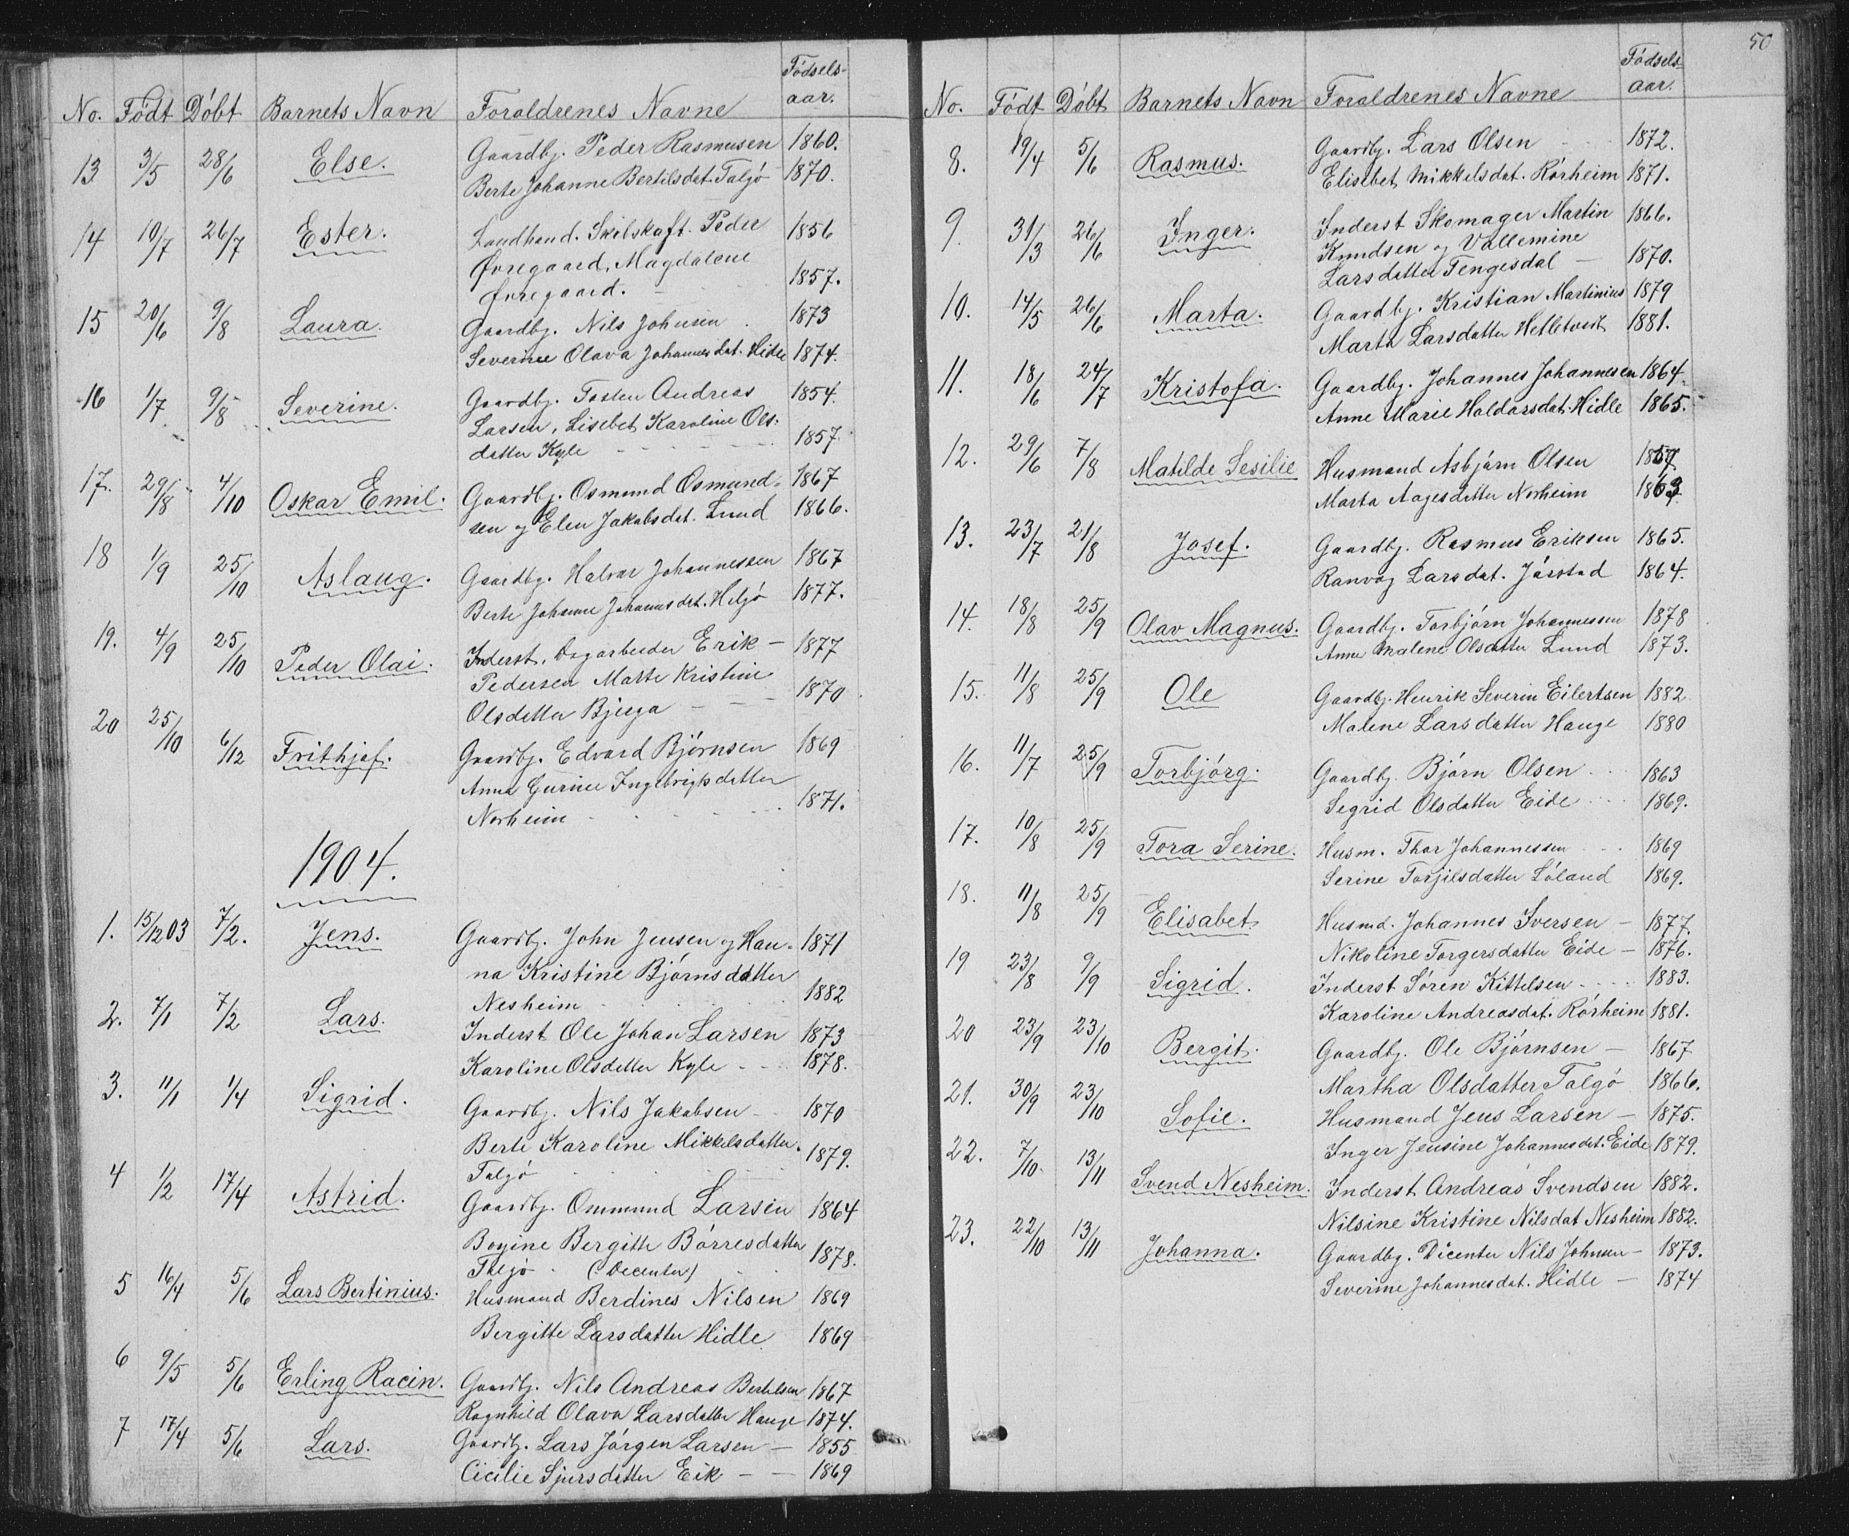 No. Født Döbt Barnets Navn Foraldrenes Navne Födsels-
aar.
13 3/5 28/6 Else. Gaardbj. Peder Rasmusen 1860.
Berte Johanne Bertilsdat. Talgö 1870.
14 10/7 26/7 Ester. Landhand. Skibskaft. Peder 1856
Øvregaard, Magdalene
Øvregaard. - 1857.
15 20/6 9/8 Laura. Gaardbj. Nils Johnsen. 1873
Severine Olava Johannesdat. Hidle 1874.
16 1/7 9/8 Severine. Gaardbj. Tosten Andreas 1854.
Larsen, Lisebet Karoline Ols-
datter Kyle - - - - 1857.
17. 29/8 4/10 Oskar Emil. Gaardbj. Osmund Osmund- 1867
sen og Elen Jakobsdat. Lund 1866.
18 1/9 25/10 Aslaug. Gaardbj. Halvor Johannessen 1867
Berte Johanne Johannesdat. Heljö 1877.
19. 4/9 25/10 Peder Olai. Inderst, Dagarbeider Erik - 1877
Pedersen Marte Kristine
Olsdatter Bjerga - - - 1870
20 25/10 6/12 Frithjof. Gaardbj. Edvard Björnsen 1869
Anna Gurine Ingebrigtsdatter
Norheim - - - - 1871.
1904.
1. 15/12 03 7/2. Jens. Gaardbj. John Jensen og Han- 1871
na Kristine Björnsdatter
Nesheim - - - - 1882
2. 7/1 7/2 Lars. Inderst Ole Johan Larsen 1873
Karoline Olsdatter Kyle - - 1878.
3. 11/1 1/4 Sigrid. Gaardbj. Nils Jakobsen - 1870
Berte Karoline Mikkelsdatter
Talgö - - - - 1879.
4 1/2 17/4 Astrid. Gaardbj. Ommund Larsen 1864
Bogine Bergitte Börresdatter
Talgö - (Decenter) 1878.
5 16/4 5/6 Lars Bertinius. Husmand Berdines Nilsen 1869
Bergitte Larsdatter Hidle. 1869
6 9/5 5/6 Erling Racin. Gaardbj. Nils Andreas Bertelsen 1867
Ragnhild Olava Larsdatter Hauge 1874.
7 17/4 5/6 Lars. Gaardbj. Lars Jörgen Larsen - 1855
Cicilie Sjursdatter Eik - - 1869
50
No. Födt Döbt Barnets Navn Foraldrenes Navne Födsels-
aar.
8. 19/4 5/6 Rasmus. Gaardbj. Lars Olsen 1872.
Elisebet Mikkelsdat. Rörheim 1871.
9. 31/3 26/6 Inger. Inderst Skomager Martin 1866.
Knudsen og Vallemine
Larsdatter Tengesdal - 1870.
10. 14/5 26/6 Marta. Gaardbj. Kristian Martinius 1879
Marta Larsdatter Helletveit 1881.
11. 18/6 24/7 Kristofa. Gaardbj. Johannes Johannesen 1864.
Anne Marie Haldorsdat. Hidle 1865.
12. 29/6 7/8 Matilde Sesilie Husmand Asbjörn Olsen
Marta Aagesdatter Norheim 1863
13. 23/7 21/8 Josef. Gaardbj. Rasmus Eriksen 1865.
Ranvåg Larsdat. Jåsstad 1864.
14. 18/8 25/9 Olav Magnus. Gaardbj. Torbjörn Johannessen 1878
Anne Malene Olsdatter Lund 1873.
15. 11/8 25/9 Ole Gaardbj. Henrik Severin Eilertsen 1882
Malene Larsdatter Hauge 1880
16. 11/7 25/9 Torbjörg. Gaardbj. Björn Olsen - - 1863
Segrid Olsdatter Eide - - 1869.
17. 10/8 25/9 Tora Serine. Husm. Thor Johannessen - - 1869
Serine Torjilsdatter Löland 1869.
18. 11/8 25/9 Elisabet Husmd. Johannes Iversen - 1877.
Nikoline Torgersdatter Eide - 1876.
19 23/8 9/9 Sigrid. Inderst Sören Kittelsen - - - 1883.
Karoline Andreasdat. Rörheim 1881.
20 23/9 23/10 Bergit. Gaardbj. Ole Björnsen - 1867
Martha Olsdatter Talgö 1866.
21. 30/9 23/10 Sofie. Husmand Jens Larsen - 1875.
Inger Jensine Johannesdat. Eide 1879.
22. 7/10. 13/11 Svend Nesheim. Inderst Andreas Svendsen 1882.
Nilsine Kristine Nilsdat Nesheim 1882.
23. 22/10 13/11 Johanna. Gaardbg. Dicenter Nils Johnsen - 1873.
Severine Johannesdat. Hidle - 1874